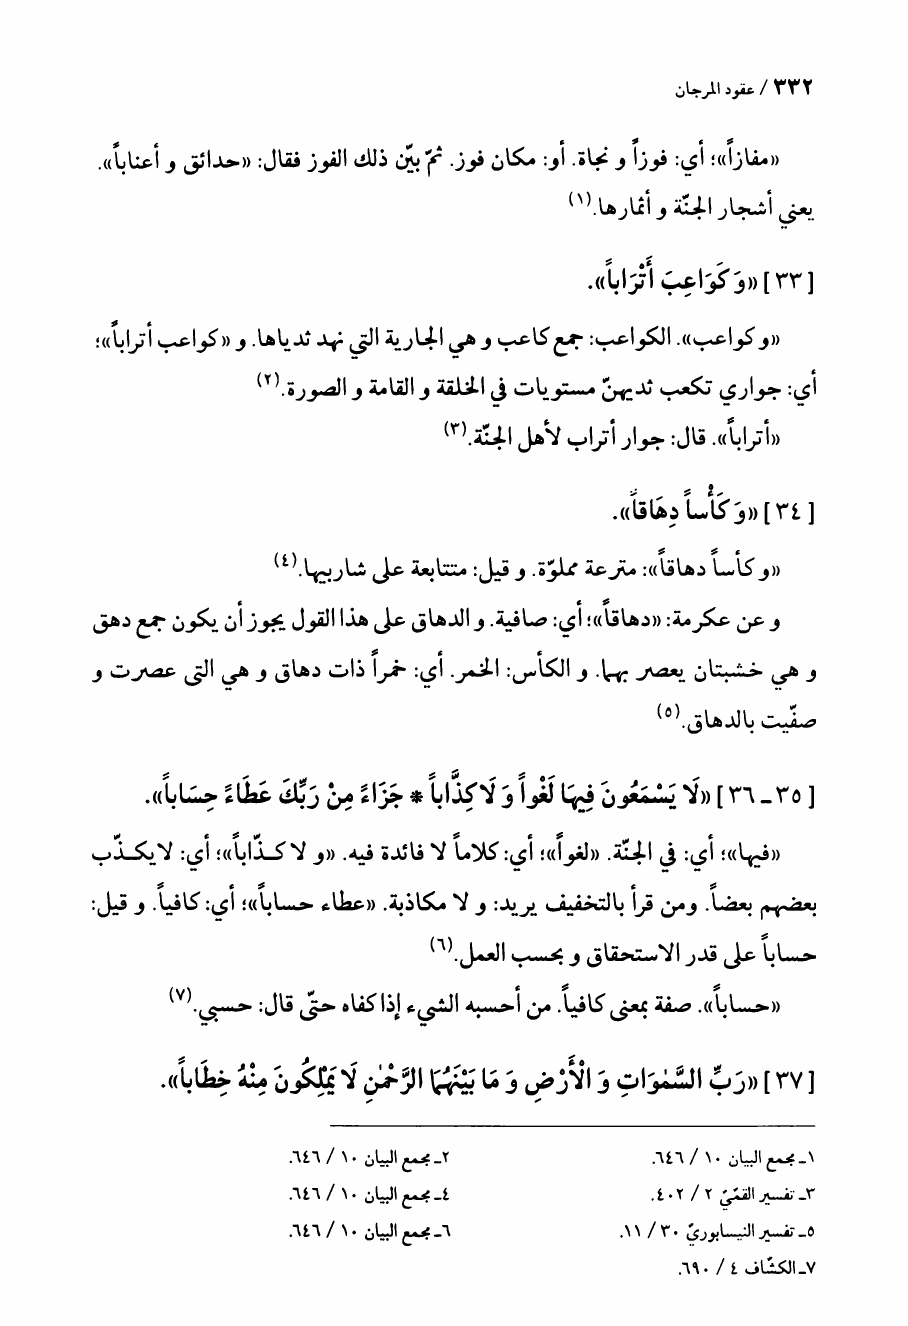 ٣٣٢ / عقود المرجان
«مفازاً»؛ أي: فوزاً و نجاة. أو: مكان فوز. ثمّ بيّن ذلك الفوز فقال: «حدائق و أعناباً».
يعني أشجار الجنّة و أثمارها.(١)
[٣٣] «وَ كَوَاعِبَ أَتْرَاباً».
«و كواعب». الكواعب: جمع كاعب و هي الجارية التي نهد ثدياها. و «كواعب أتراباً»؛
أي: جواري تكعب ثديهنّ مستويات في الخلقة و القامة و الصورة.(٢)
«أتراباً». قال: جوار أتراب لأهل الجنّة.(٣)
[٣٤] «وَ كَأْساً دِهَاقاً».
«و كأساً دهاقاً»: مترعة مملوّة. و قيل: متتابعة على شاربيها.(٤)
و عن عكرمة: «دهاقاً»؛ أي: صافية. و الدهاق على هذا القول يجوز أن يكون جمع دهق
و هي خشبتان يعصر بهما. و الكأس: الخمر. أي: خمراً ذات دهاق و هي التى عصرت و
صفّيت بالدهاق.(٥)
[٣٥ ـ ٣٦] «لَا يَسْمَعُونَ فِيهَا لَغْواً وَ لَا كِذَّاباً * جَزَاءً مِنْ رَبِّكَ عَطَاءً حِسَاباً».
«فيها»؛ أي: في الجنّة. «لغواً»؛ أي: كلاماً لا فائدة فيه. «و لا كذّاباً»؛ أي: لايكذّب
بعضهم بعضاً. ومن قرأ بالتخفيف يريد: و لا مكاذبة. «عطاء حساباً»؛ أي: كافياً. و قيل:
حساباً على قدر الاستحقاق و بحسب العمل.(٦)
«حساباً». صفة بمعنى كافياً. من أحسبه الشيء إذا كفاه حتّى قال: حسبي.(٧)
[٣٧] «رَبِّ السَّمٰوَاتِ وَ الْأَرْضِ وَ مَا بَيْنَهُمَا الرَّحْمٰنِ لَا يَمْلِكُونَ مِنْهُ خِطَاباً».
١ـ مجمع البيان ١٠ / ٦٤٦.
٢ـ مجمع البيان ١٠ / ٦٤٦.
٣ـ تفسير القمّيّ ٢ / ٤٠٢.
٤ـ مجمع البيان ١٠ / ٦٤٦.
٥ـ تفسير النيسابوريّ ٣٠ / ١١.
٦ـ مجمع البيان ١٠ / ٦٤٦.
٧ـ الكشّاف ٤ / ٦٩٠.